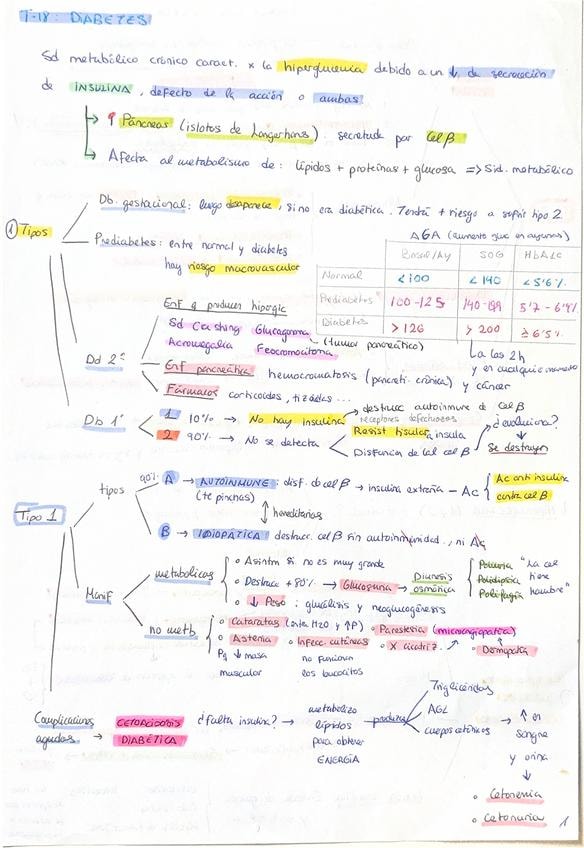 T-18: DIABETES
Sd metabólico crónico caract. x la hiperglucemia debido a un ↓ de secreción
de INSULINA, defecto de la acción o ambas
↑ Páncreas (islotes de Langerhans). secretada por Cel β
Afecta al metabolismo de: lípidos + proteínas + glucosa => Sid. metabólico
① Tipos
Db. gestacional: luego desaparece, si no era diabética. Tendrá + riesgo a sufrir tipo 2
Prediabetes: entre normal y diabetes
hay riesgo macrovascular
AGA (aumento gluc en ayunas)
Basal/Ay SOG HbA1c
Normal <100 <140 <5'6%
Prediabetes 100-125 140-199 5'7-6'4%
Diabetes >126 >200 ≥6'5%
La las 2h
y en cualquier momento
Dd 2º
Enf q producen hipergluc
Sd Cushing Glucagonoma (tumor pancreático)
Acromegalia Feocromocitoma
Enf pancreática hemocromatosis (pancreti. crónica) y cáncer
Fármacos corticoides, tizidas...
Db 1º
1 10% → No hay insulina → destrucc autoinmune de cel β
receptores defectuosos
2 90% → No se detecta
Resist tisular a insula
Disfunción de la cel β
¿evoluciona?
↓
Se destruyen
Tipo 1
tipos
90% A → AUTOINMUNE: disf. de cel β → insulina extraña - Ac
(te pinchas)
Ac anti insulina
contra cel β
↕ hereditarios
B → IDIOPÁTICA: destrucc. cel β sin autoinmunidad, ni Ac
Manif
metabólicas
Asintm si no es muy grande
Destrucc +80% → Glucosuria → Diuresis
osmótica
↓ Peso: glucólisis y neoglucogénesis
Poliuria
Polidipsia
Polifagia
"La cel
tiene
hambre"
no metb
Cataratas (entra H2O y ↑P)
Parestesia (microangiopatía)
Astenia
Infecc. cutáneas
X cicatriz.
Dermopatía
Pq ↓ masa
muscular
no funcionan
los leucocitos
Complicaciones
agudas → CETOACIDOSIS
DIABÉTICA
¿falta insulina? → metabolizo
lípidos
para obtener
ENERGÍA
produzco
Triglicéridos
AGL
cuerpos cetónicos → ↑ en
sangre
y orina
↓
Cetonemia
Cetonuria
1